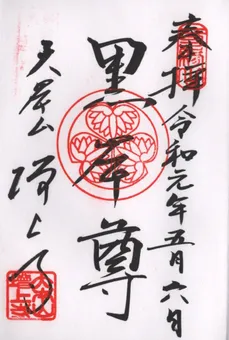 奉拝 令和元年五月六日
黒本尊
大本山 増上寺